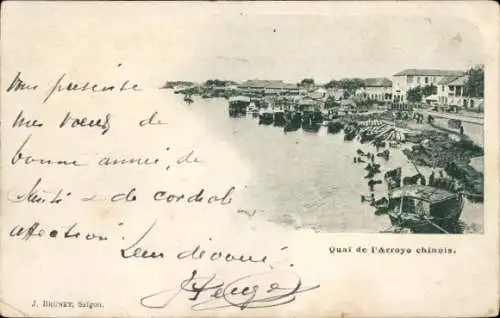 Vous présente
mes vœux de
bonne année, de
santé & de cordiale
affection.
Bien dévoué
Quai de l'Arroyo chinois.
J. BRUNET, Saigon.